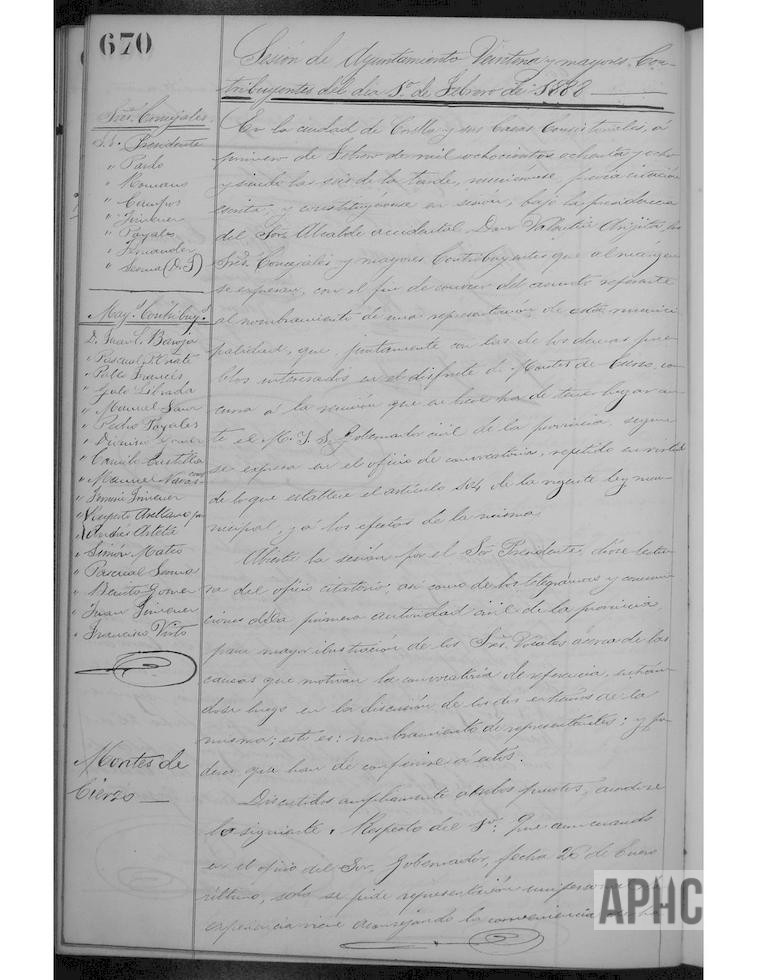 670
Sesión de Ayuntamiento Veintena y mayores Con-
tribuyentes del día 1º de Febrero de 1888
Sres. Concejales.
Sr. Presidente
" Pardo
" Romano
" Campos
" Jimenez
" Fayalos
" Fernandez
" Sesma (D. J)
May.s Contribuy.s
D. Juan C. Baroja
" Pascual Oñate
" Pablo Francés
" Julo Librada
" Manuel Sanz
" Pedro Poyales
" Dionisio Gomez
" Camilo Castilla
" Manuel Navas
" Fermin Jimenez
" Ruperto Arellano
" Andres Arteta
" Simón Mateo
" Pascual Sesma
" Benito Gomez
" Juan Jimenez
" Francisco Virto
Montes de
Cierzo
En la ciudad de Corella y sus Casas Consistoriales, á
primero de Febrero de mil ochocientos ochenta y ocho
y siendo las seis de la tarde, reuniéronse, previa citación
escrita, y constituyéronse en sesión, bajo la presidencia
del Sor. Alcalde accidental Don Valentin Arigita, los
Sres. Concejales y mayores Contribuyentes que al margen
se expresan, con el fin de conocer del asunto referente
al nombramiento de una representación de esta munici
palidad, que, juntamente con las de los demas pue-
blos interesados en el disfrute de Montes de Cierzo, con
curra á la reunión que en breve ha de tener lugar an-
te el M. I. S. Gobernador civil de la provincia, segun
se expresa en el oficio de convocatoria, repetido en virtud
de lo que establece el artículo 104 de la vigente ley mu-
nicipal, y á los efectos de la misma.
Abierta la sesión por el Sor. Presidente, dióse lectu-
ra del oficio citatorio; asi como de los telegramas y comuni-
caciones de la primera autoridad civil de la provincia,
para mayor ilustración de los Sres. Vocales acerca de las
causas que motivan la convocatoria de referencia, entrán-
dose luego en la discusión de los dos extremos de la
misma; esto es: nombramiento de representantes; y po-
deres que han de conferirse á estos.
Discutidos ampliamente ambos puntos, acordose
lo siguiente. Respecto del 1º: Que aun cuando
en el oficio del Sor. Gobernador, fecha 26 de Enero
último, solo se pide representación unipersonal, la
experiencia viene aconsejando la conveniencia
APHC